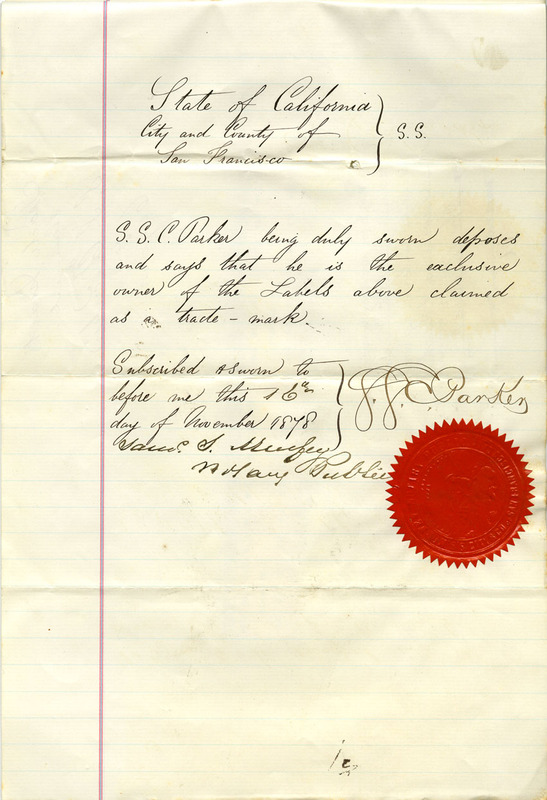 State of California
City and County of } S.S.
San Francisco
S. S. C. Parker being duly sworn deposes
and says that he is the exclusive
owner of the Labels above claimed
as a trade - mark.
Subscribed & sworn to
before me this 16th
day of November 1878
S. S. C. Parker
Saml. S.
Notary Public